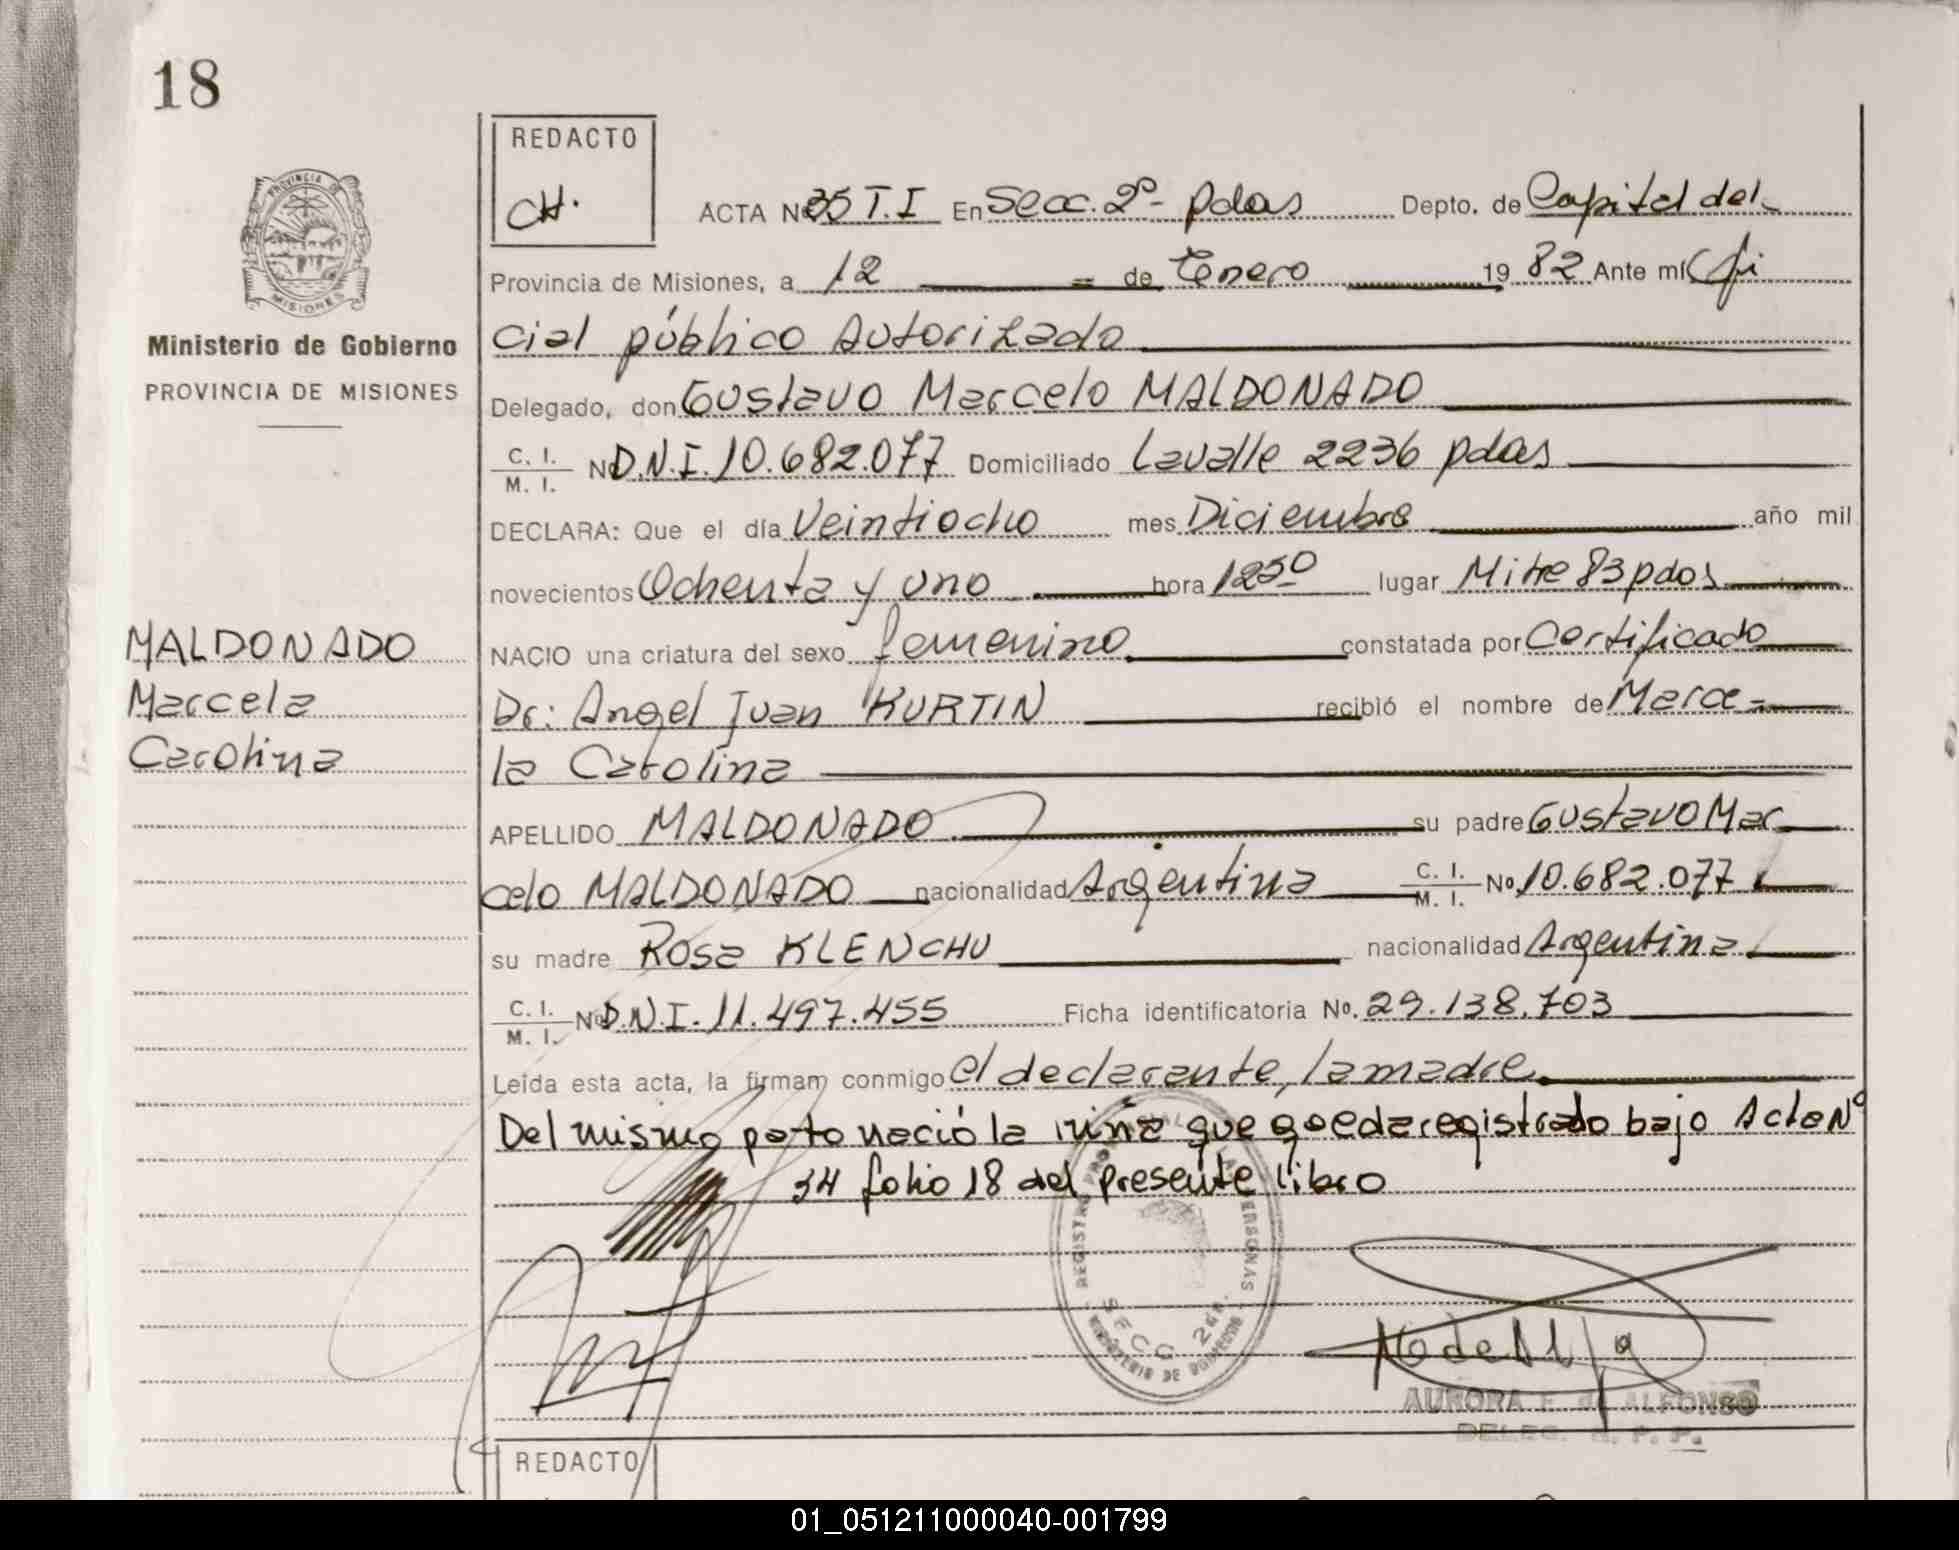 18
REDACTO
CH.
PROVINCIA DE
MISIONES
Ministerio de Gobierno
PROVINCIA DE MISIONES
ACTA Nº 35 T.I En Secc. 2º- Pdas Depto. de Capital del
Provincia de Misiones, a 12 de Enero 19 82 Ante mí Ofi
cial público Autorizado
Delegado, don Gustavo Marcelo MALDONADO
C. I.
M. I. Nº D.N.I. 10.682.077 Domiciliado Lavalle 2236 pdas
DECLARA: Que el día Veintiocho mes Diciembre año mil
novecientos Ochenta y uno hora 1250 lugar Mitre 83 pdas
MALDONADO
Marcela
Carolina
NACIO una criatura del sexo femenino constatada por Certificado
Dr: Angel Juan KURTIN recibió el nombre de Marce-
la Carolina
APELLIDO MALDONADO su padre Gustavo Mar
celo MALDONADO nacionalidad Argentina C. I. M. I. Nº 10.682.077
su madre Rosa KLENCHU nacionalidad Argentina
C. I.
M. I. Nº D.N.I. 11.497.455 Ficha identificatoria Nº. 29.138.703
Leída esta acta, la firman conmigo el declarante, la madre
Del mismo parto nació la niña que queda registrado bajo Acta Nº
34 folio 18 del presente libro
SECC 2da.
AURORA F. de ALFONSO
DELEG. R. P. P.
REDACTO
01_051211000040-001799